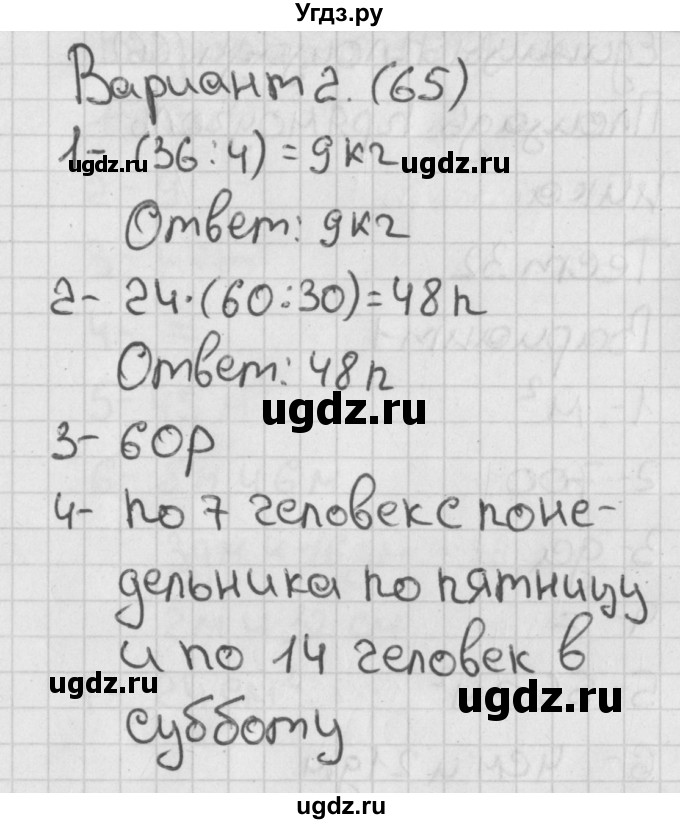 Угдз.ру
Вариант 2. (65)
1- (36:4) = 9кг
ugdz.ru
ugdz.ru
Ответ: 9кг
2- 24·(60:30)=48п
Ответ: 48п
ugdz.ru
3- 60р
4- по 7 человек с поне-
дельника по пятницу
и по 14 человек в
ugdz.ru
ugdz.ru
субботу
ugdz.ru